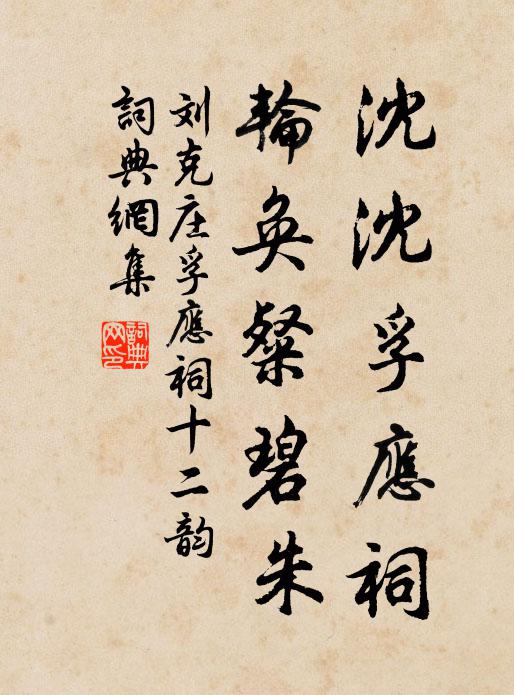 沈沈孚應祠
輪奐粲碧朱
刘克庄孚應祠十二韵
詞典網集
詞典網印